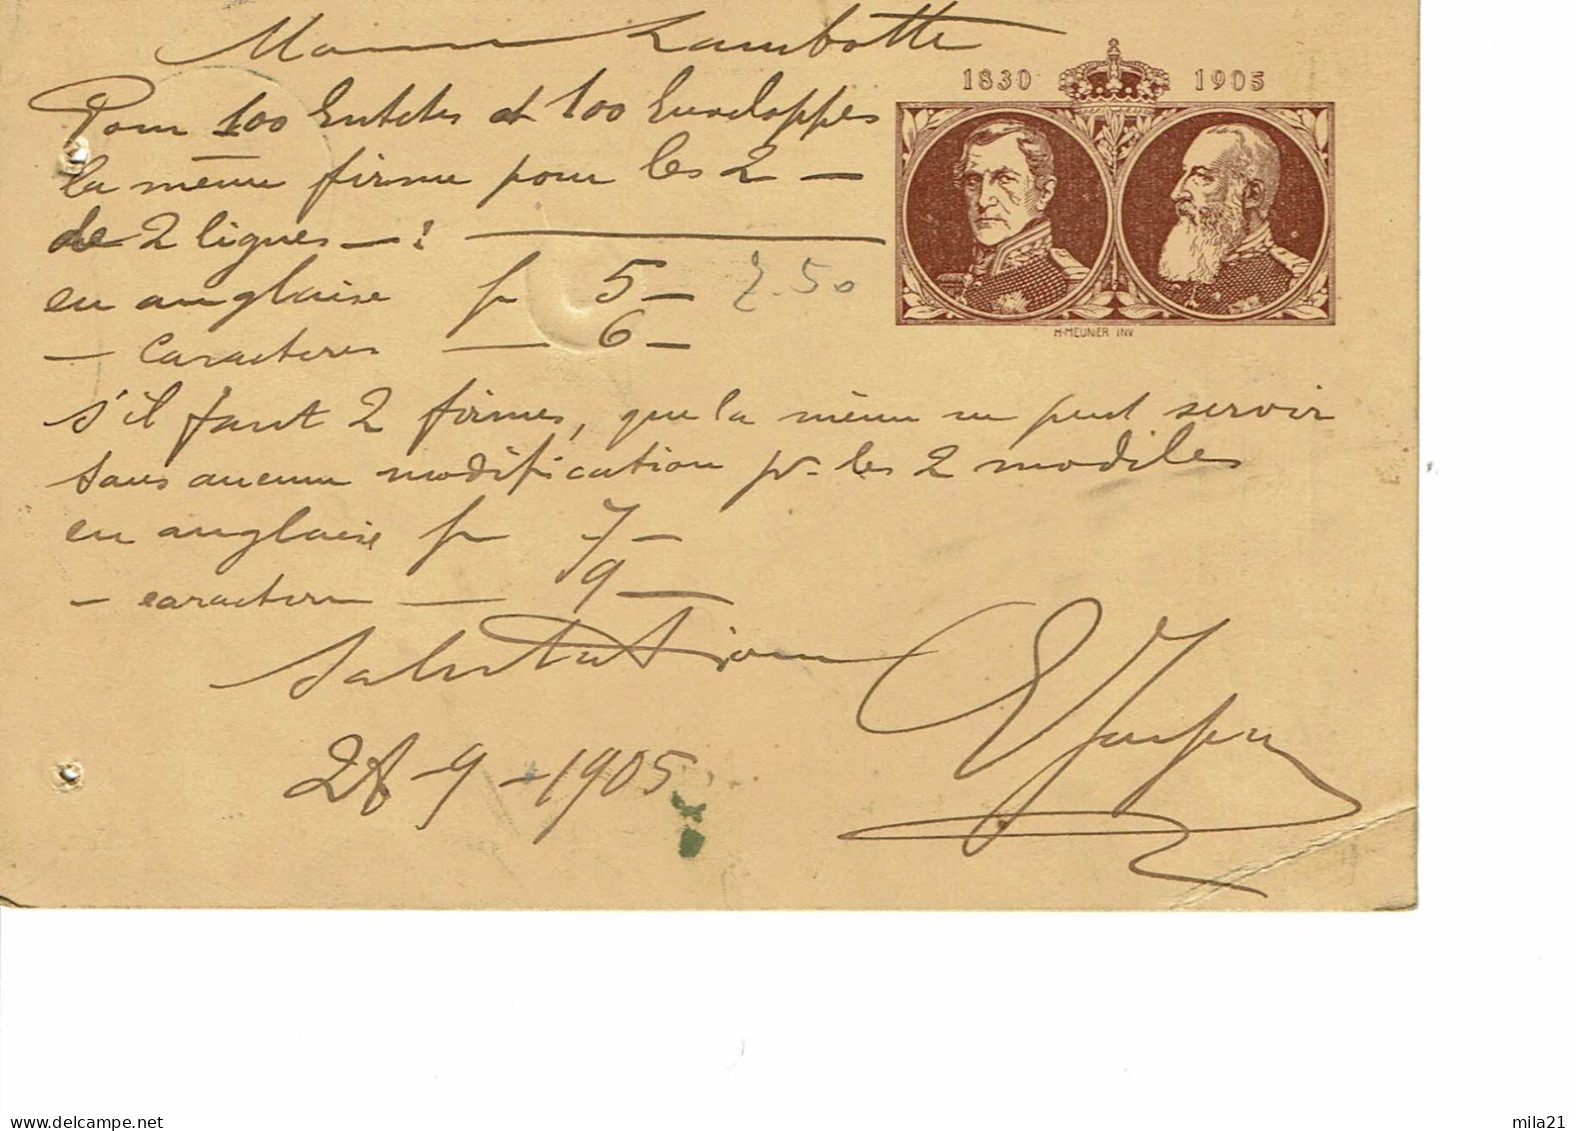 Lambotte
1830 1905
Pour 100 Entetes et 100 Enveloppes
la même firme pour les 2 —
de 2 lignes — : ——
en anglaise fr 5 — 7.50
— Caracteres — 6 —
H·MEUNIER INV
s'il faut 2 firmes, que la même ne peut servir
sans aucune modification pr. les 2 modèles
en anglaise fr 7 —
— caractere — 9 —
Salutations
28-9-1905
delcampe.net
mila21